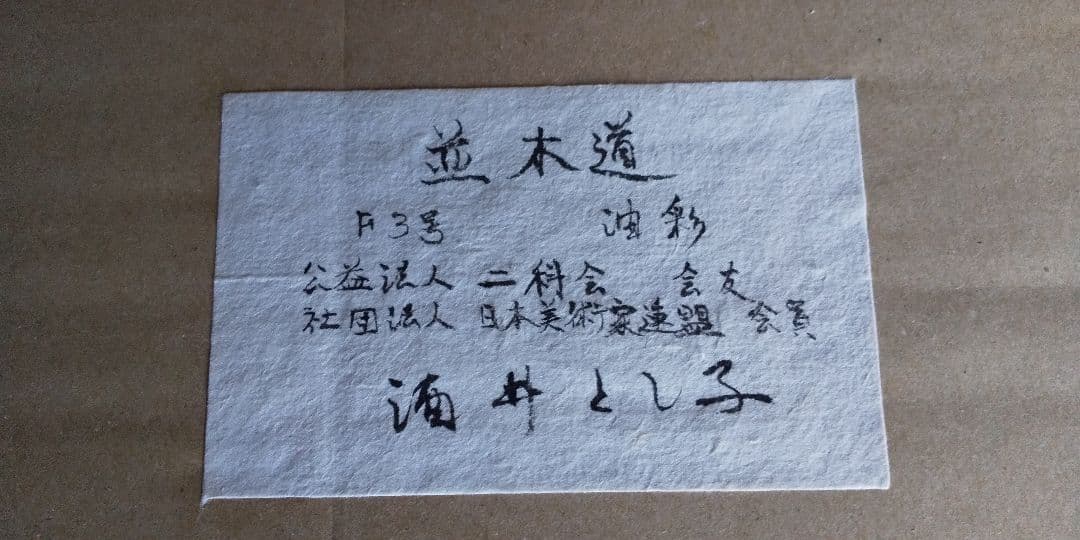 並木道
F3号 油彩
公益法人 二科会 会友
社団法人 日本美術家連盟 会員
酒井とし子